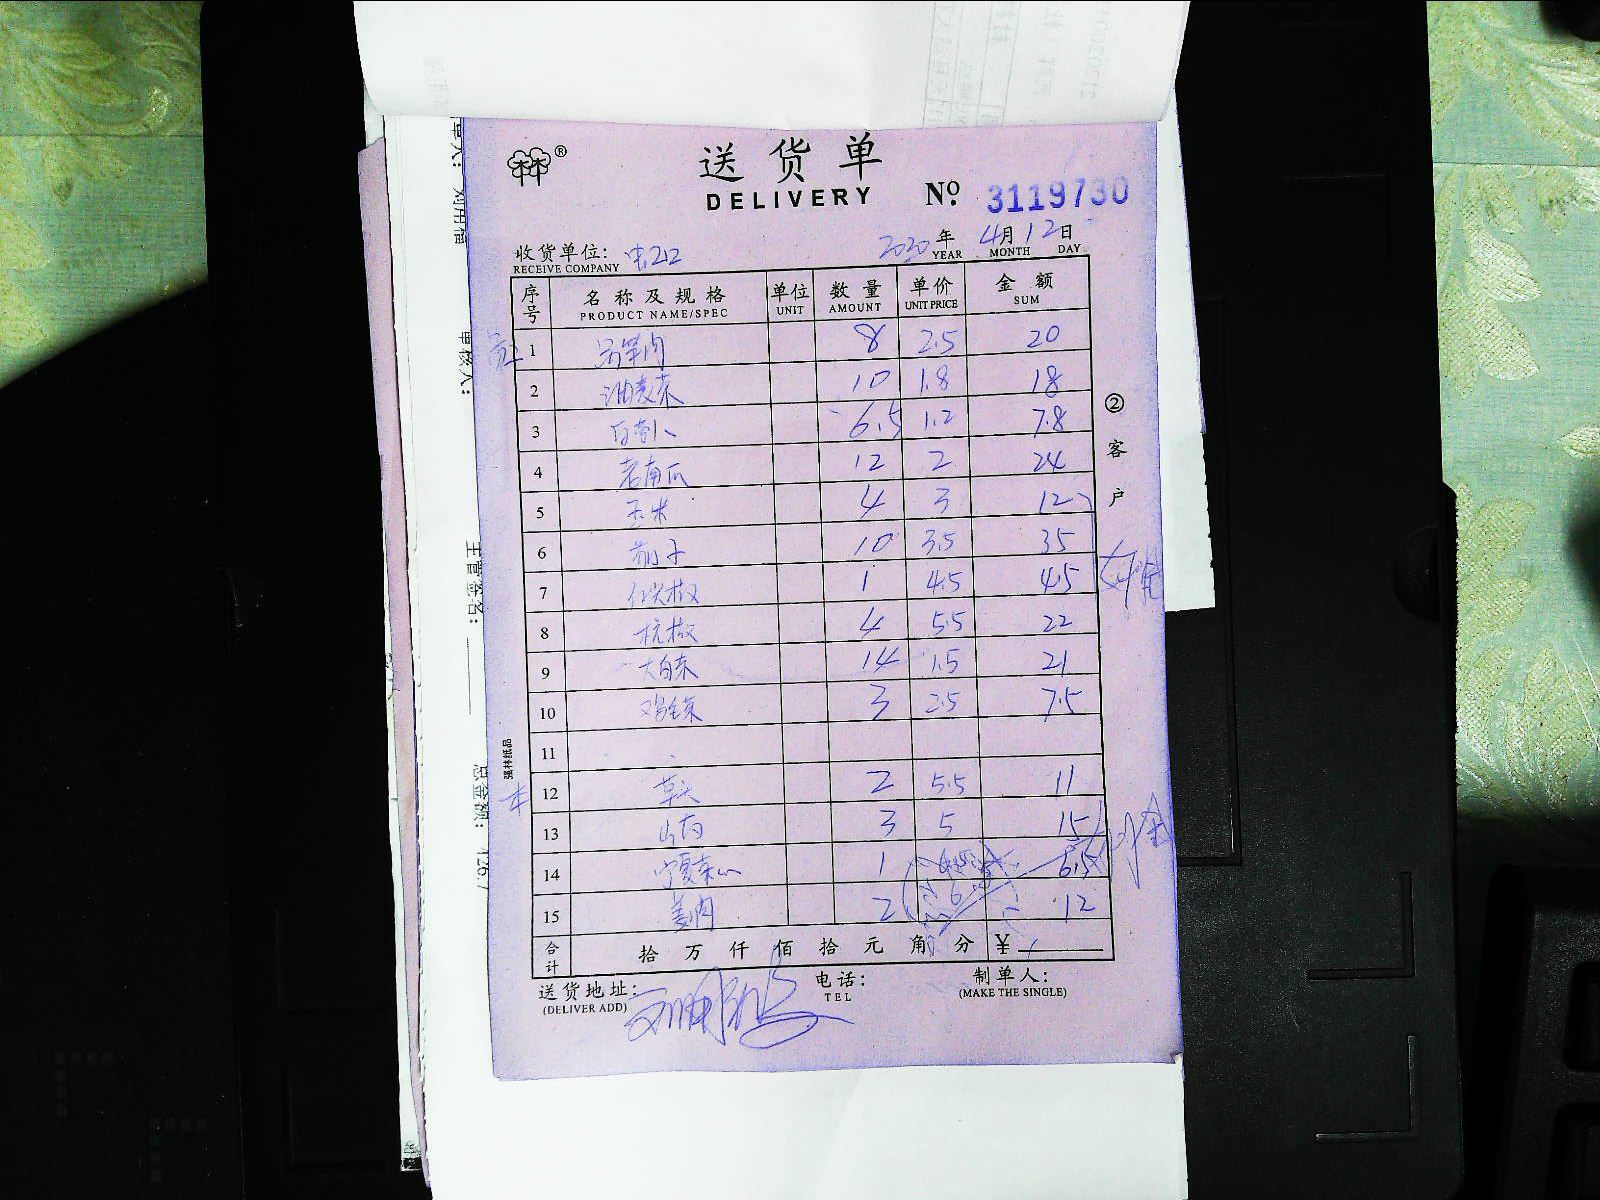 送货单
DELIVERY No. 3119730
收货单位:
RECEIVE COMPANY
2020年 4月 12日
YEAR MONTH DAY
序号 名称及规格 单位 数量 单价 金额
PRODUCT NAME/SPEC UNIT AMOUNT UNIT PRICE SUM
1 莴笋肉 8 2.5 20
2 油麦菜 10 1.8 18
3 白萝卜 6.5 1.2 7.8
4 老南瓜 12 2 24
5 玉米 4 3 12
6 茄子 10 3.5 35
7 红尖椒 1 4.5 4.5
8 杭椒 4 5.5 22
9 大白菜 14 1.5 21
10 鸡毛菜 3 2.5 7.5
11
12 草头 2 5.5 11
13 山药 3 5 15
14 宁夏菜心 1 6.5 6.5
15 姜肉 2 6 12
合计 拾 万 仟 佰 拾 元 角 分 ¥
送货地址: 电话: 制单人:
(DELIVER ADD) TEL (MAKE THE SINGLE)
②客户
强林纸品
审核人:
主管签名:
总金额: